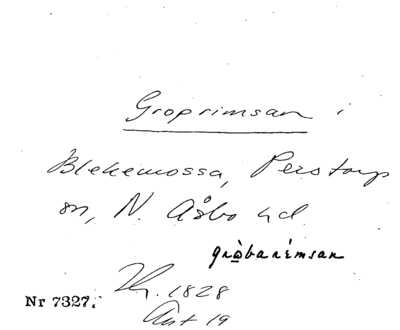 Groprimsan i
Blekemossa, Perstorp
sn, N. Åsbo hd.
gròbarémsan
Nr 7327. 1828
Ant 19